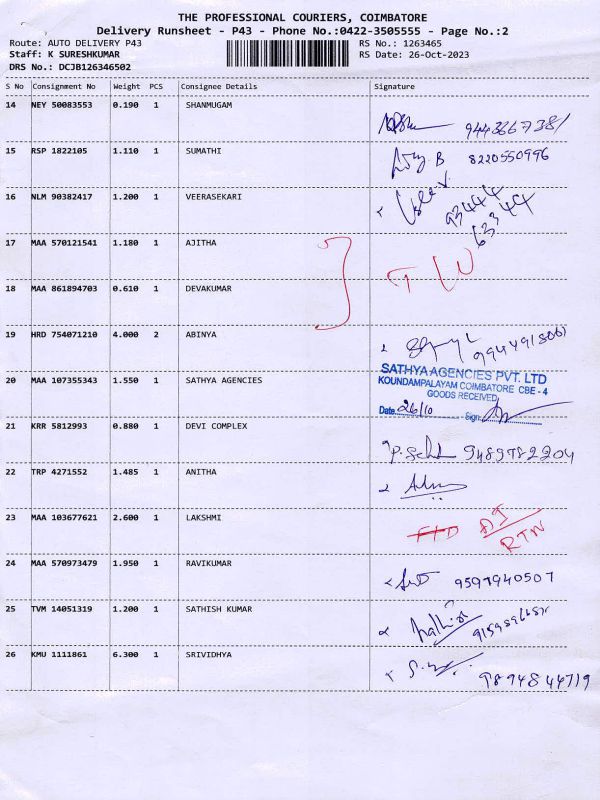 THE PROFESSIONAL COURIERS, COIMBATORE
Delivery Runsheet - P43 - Phone No.:0422-3505555 - Page No.:2
Route: AUTO DELIVERY P43 RS No.: 1263465
Staff: K SURESHKUMAR RS Date: 26-Oct-2023
DRS No.: DCJB126346502
S No Consignment No Weight PCS Consignee Details Signature
14 NEY 50083553 0.190 1 SHANMUGAM
15 RSP 1822105 1.110 1 SUMATHI 8220550996
16 NLM 90382417 1.200 1 VEERASEKARI
17 MAA 570121541 1.180 1 AJITHA
18 MAA 861894703 0.610 1 DEVAKUMAR
19 HRD 754071210 4.000 2 ABINYA
SATHYA AGENCIES PVT. LTD
KOUNDAMPALAYAM COIMBATORE CBE - 4
20 MAA 107355343 1.550 1 SATHYA AGENCIES
GOODS RECEIVED
Date 26/10 Sign
21 KRR 5812993 0.880 1 DEVI COMPLEX 9489782204
22 TRP 4271552 1.485 1 ANITHA
23 MAA 103677621 2.600 1 LAKSHMI RTN
24 MAA 570973479 1.950 1 RAVIKUMAR 9597940507
25 TVM 14051319 1.200 1 SATHISH KUMAR
26 KMU 1111861 6.300 1 SRIVIDHYA 7894844719